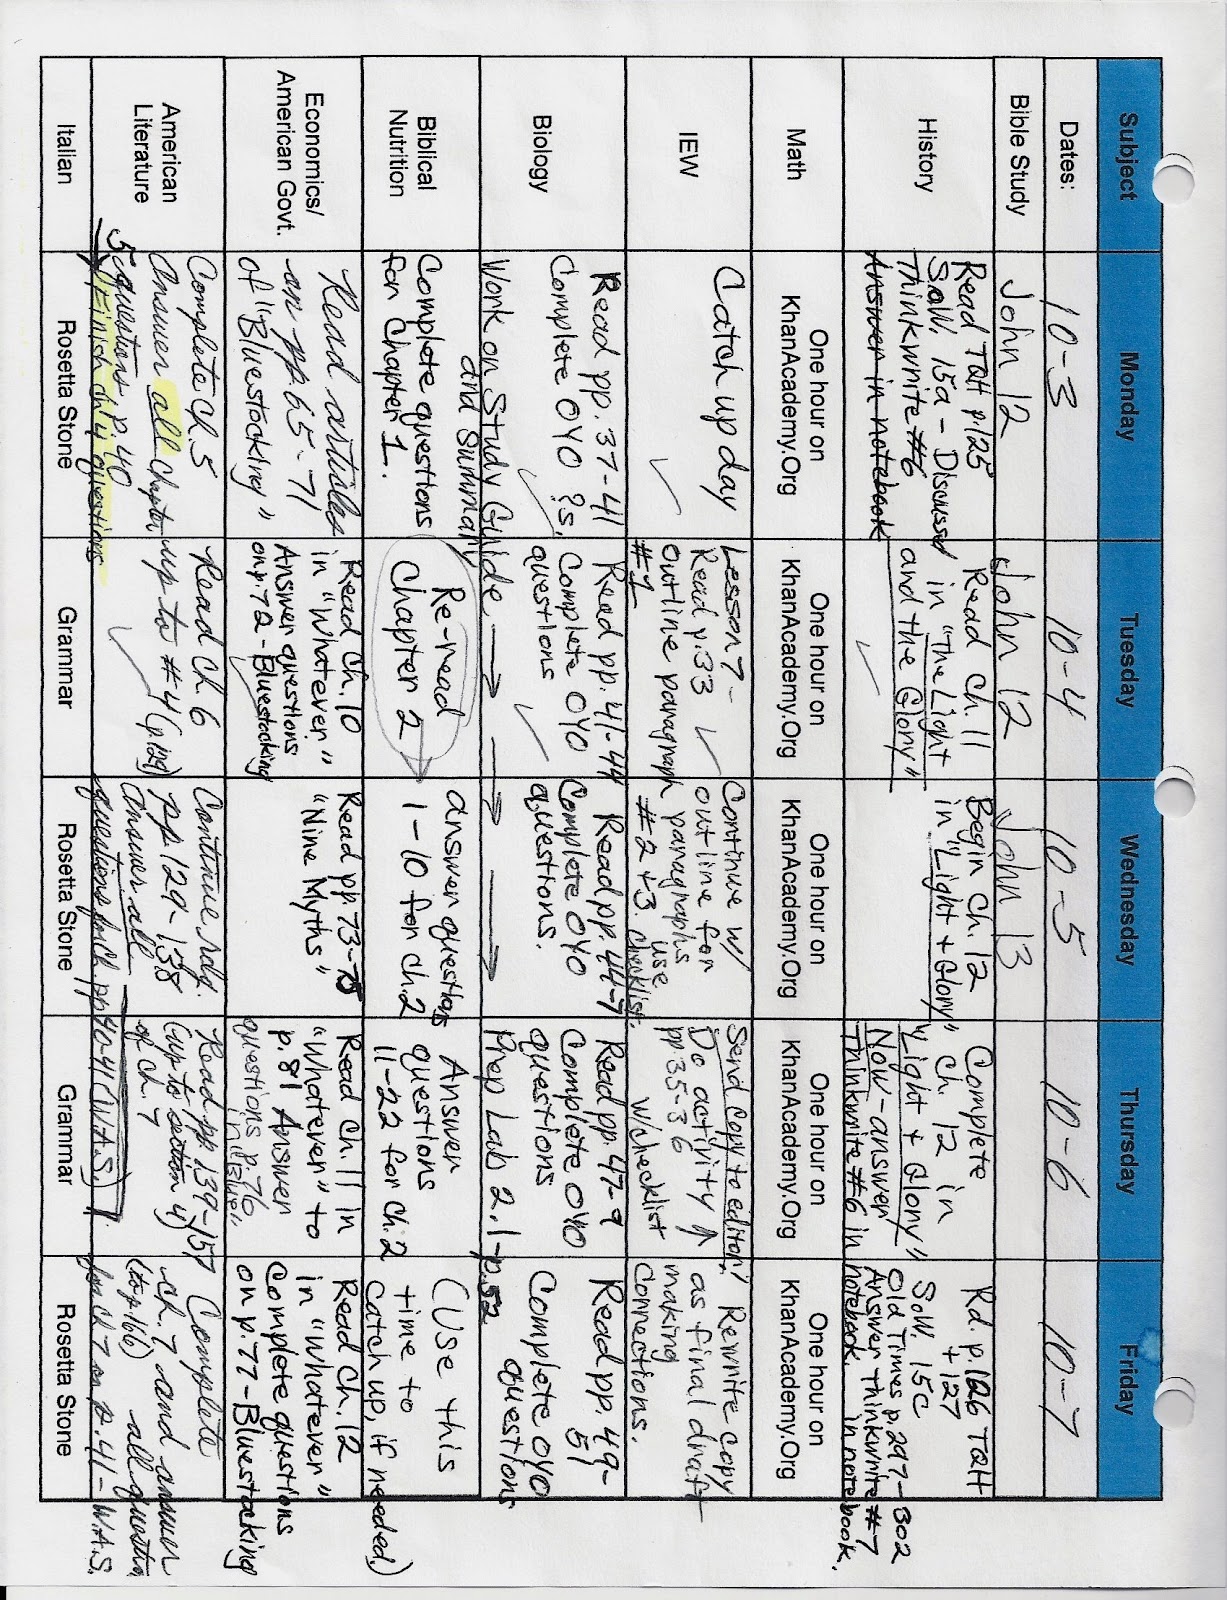 Subject Monday Tuesday Wednesday Thursday Friday
Dates: 10-3 10-4 10-5 10-6 10-7
Bible Study John 12 John 12 John 13
History
Read TQH p.125
S.O.W. 15a - Discussed
Thinkwrite #6
Answer in notebook
Read Ch. 11
in "The Light
and the Glory"
Begin Ch. 12
in "Light + Glory"
Complete
Ch. 12 in
"Light + Glory"
Now - answer
Thinkwrite #6 in notebook.
Rd. p.126 TQH
+ 127
S.O.W. 15C
Old Times p.297-302
Answer Thinkwrite #7
in notebook.
Math
One hour on
KhanAcademy.Org
One hour on
KhanAcademy.Org
One hour on
KhanAcademy.Org
One hour on
KhanAcademy.Org
One hour on
KhanAcademy.Org
IEW
Catch up day
Lesson 7 -
Read p.33
outline paragraph
#1
Continue w/
outline for
paragraphs
#2 + 3. use
checklist.
Send copy to editor!
Do activity ↑
pp.35-36
w/checklist
Rewrite copy
as final draft
making
connections.
Biology
Read pp. 37-41
Complete OYO ?s.
Work on Study Guide
and Summary
Read pp. 41-44
Complete OYO
questions
Read pp. 44-7
Complete OYO
questions.
Read pp. 47-9
Complete OYO
questions
Prep Lab 2.1-p.52
Read pp. 49-
51
Complete OYO
questions
Biblical
Nutrition
Complete questions
for Chapter 1.
Re-read
Chapter 2
answer questions
1-10 for ch.2
Answer
questions
11-22 for Ch.2
(Use this
time to
catch up, if needed.)
Economics/
American Govt.
Read articles
on pp. 65-71
of "Bluestocking"
Read Ch. 10
in "Whatever"
Answer questions
on p.72 - Bluestocking
Read pp. 73-75
"Nine Myths"
Read Ch. 11 in
"Whatever" to
p.81 Answer
questions p.76
in "Blue"
Read Ch. 12
in "Whatever"
Complete questions
on p.77 - Bluestocking
American
Literature
Complete Ch. 5
Answer all Chapter
5 questions p.40
Finish ch.4 questions
Read Ch. 6
up to #4 (p.129)
Continue rdg.
pp. 129-138
Answer all
questions pp.40-41 (W.A.S.)
Read pp. 139-157
(up to section 4)
of Ch. 7
Complete
ch. 7 and answer
(to p.166) all questions
for Ch 7 on p.41 - W.A.S.
Italian Rosetta Stone Grammar Rosetta Stone Grammar Rosetta Stone